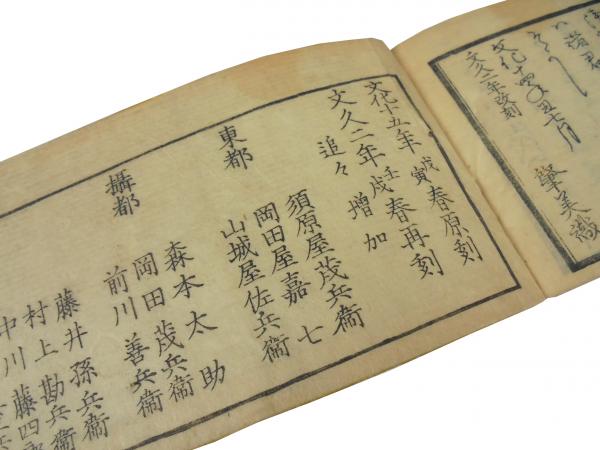 文化十四年丑七月
文久二年改刻
肇美識
文化十五年戊寅春原刻
文久二年壬戌春再刻
追々増加
須原屋茂兵衞
東都 岡田屋嘉七
山城屋佐兵衞
森本太助
攝都 岡田茂兵衞
前川善兵衞
藤井孫兵衞
村上勘兵衞
中川藤四